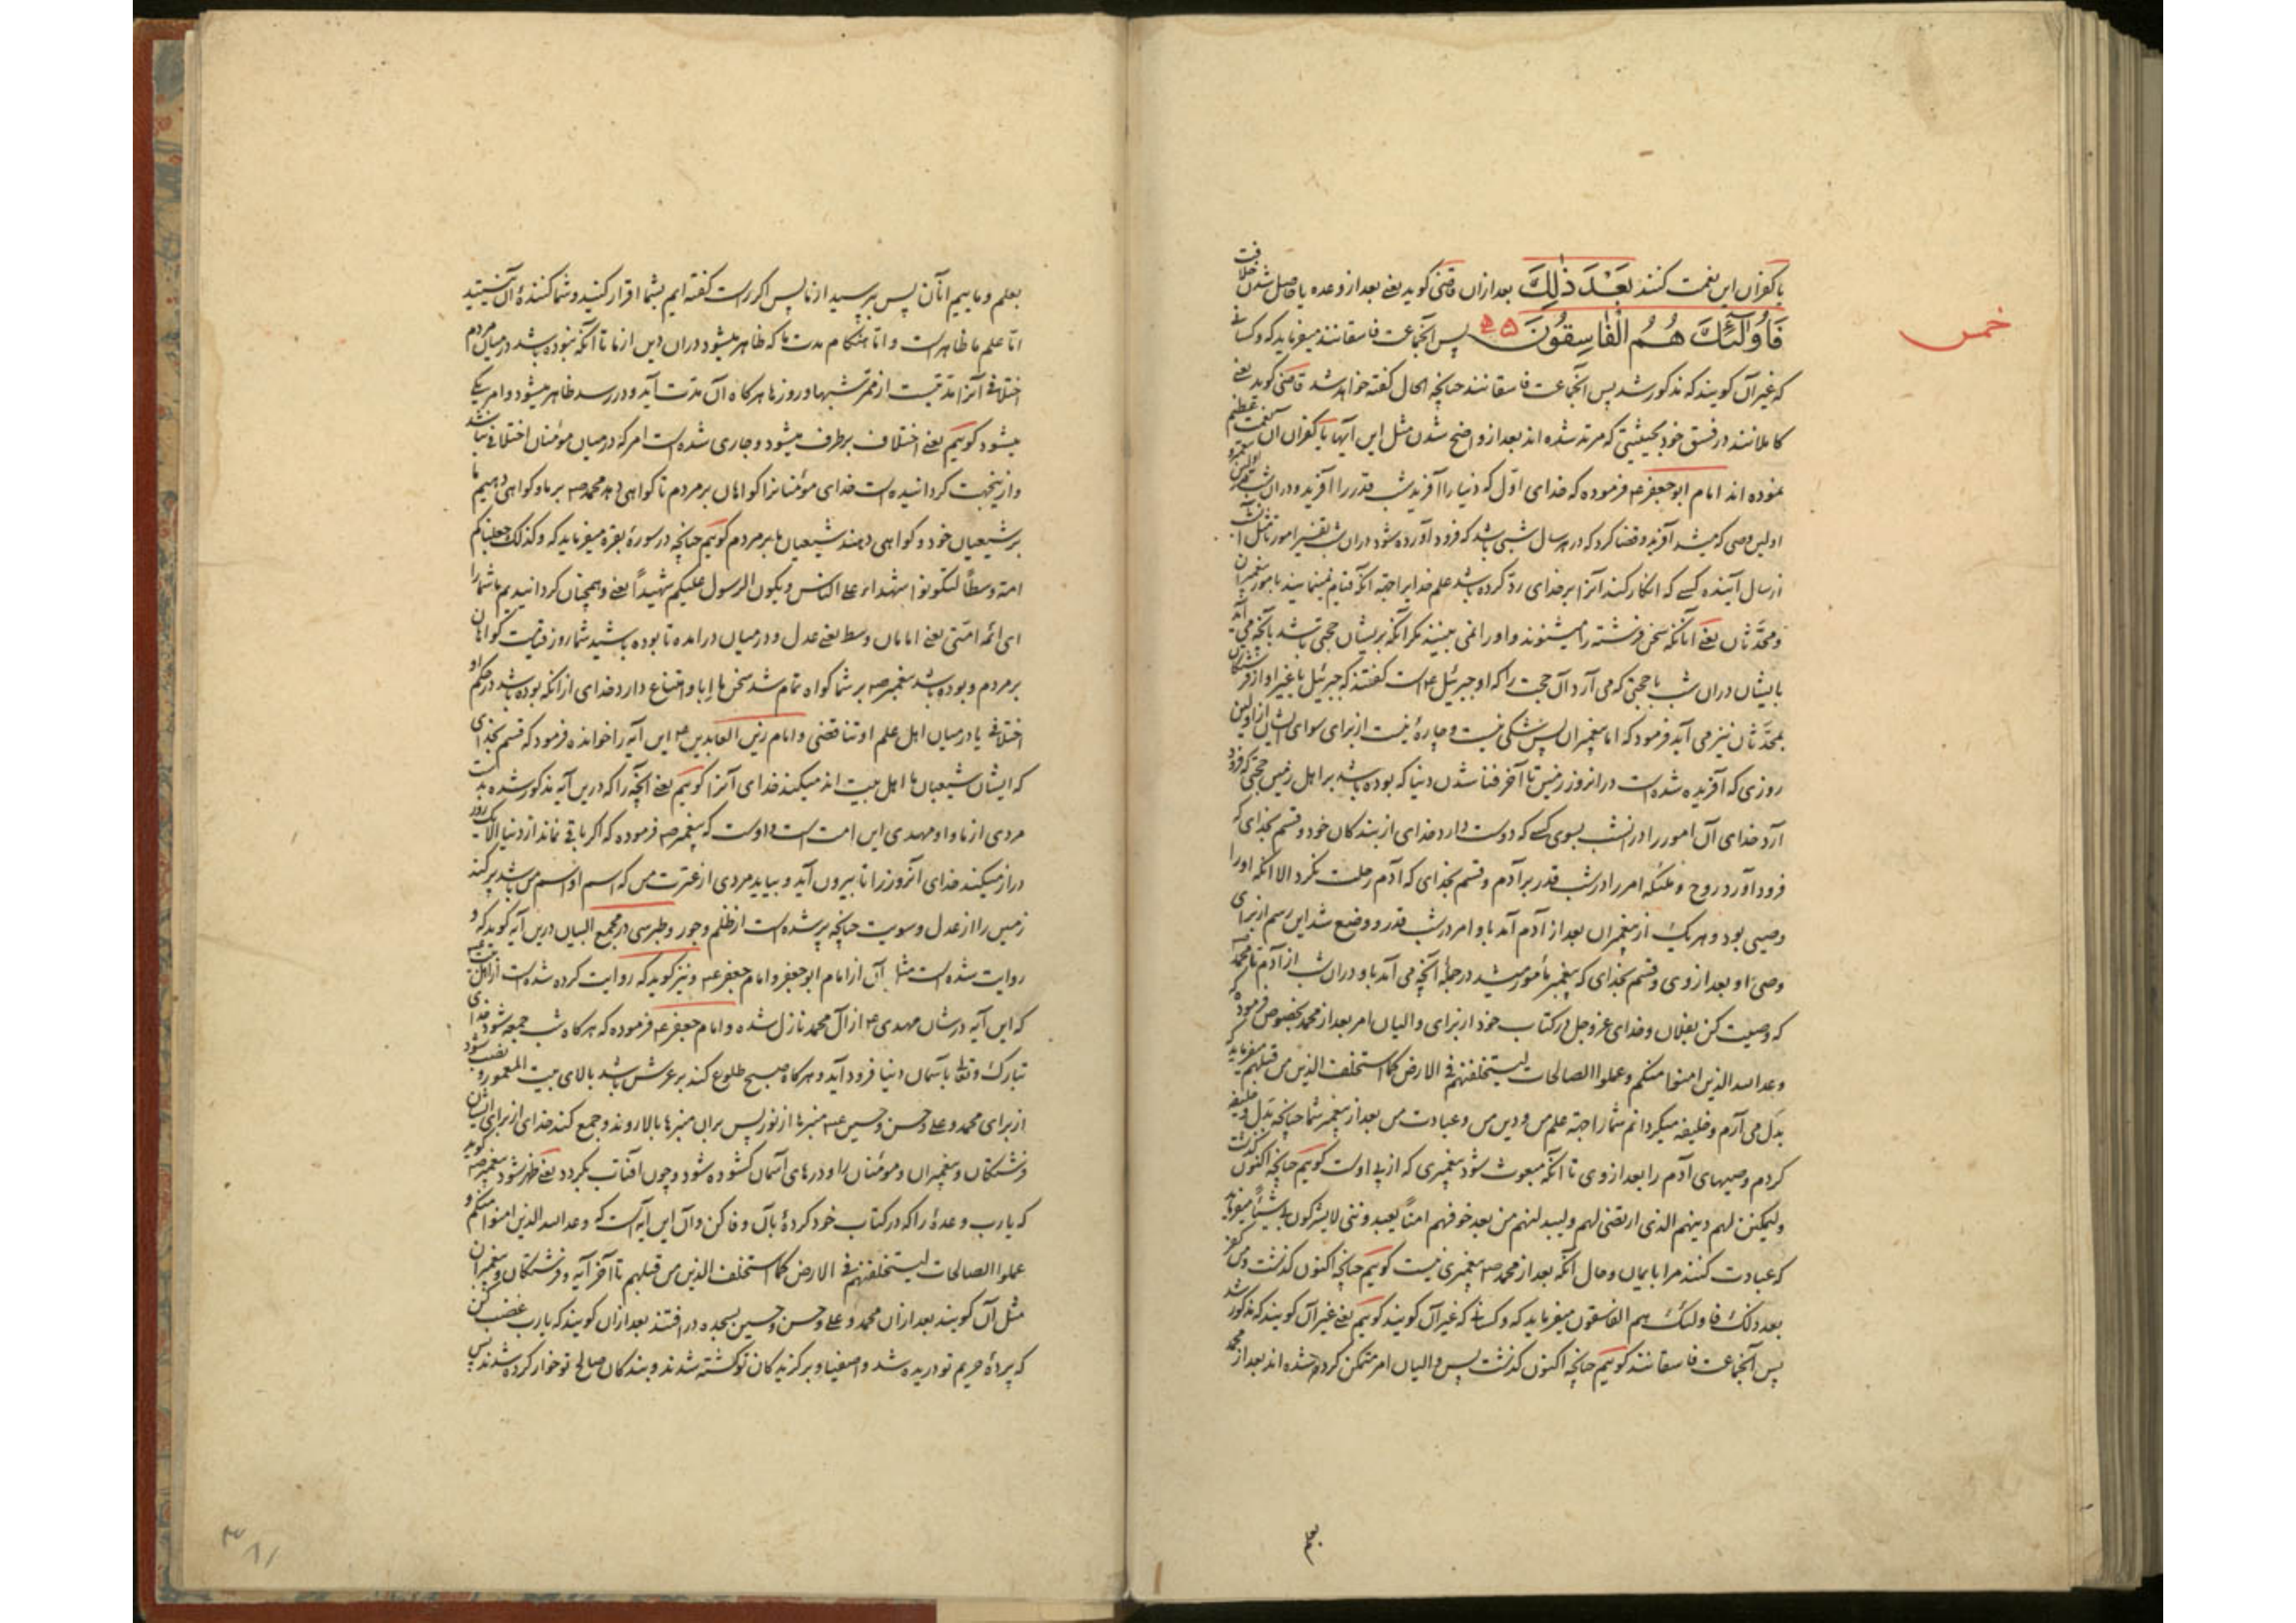 یا کفران این نعمت کنند بَعْدَ ذٰلِكَ بعد ازان قاضی گوید یعنی بعد از وعده یا حاصل شدن خلافت
فَاُولٰٓئِكَ هُمُ الْفَاسِقُونَ پس آنجماعت فاسقانند میفرماید که و کسانی
خمس
که غیر آن کویند که مذکور شد پس آنجماعت فاسقانند چنانچه الحال کفته خواهد شد قاضی کوید یعنی
کاملانند در فسق خود بحیثیتی که مرتد شده اند بعد از واضح شدن مثل این آیها یا کفران آن نعمت عظیم
نموده اند امام ابو جعفر ع فرموده که خدای اول که دنیا را آفرید شب قدر را آفرید و دران شب
اولین وصی که میشد آفرید و قضا کرد که در هر سال شبی باشد که فرود آورده شود دران شب تفسیر امور تا مثل آن
از سال آینده کسی که انکار کند آنرا بر خدای رد کرده باشد علم خدایرا جهة آنکه قیام نمینمایند بامور پیغمبران
و محدثان یعنی آنانکه سخن فرشته را میشنوند و او را نمی بینند مکر آنکه بر ایشان حجتی باشد بآنچه می آید
بایشان دران شب با حجتی که می آرد آن حجت را که او جبرئیل ع است کفتند که جبرئیل یا غیر او از فرشتکان
بمحدثان نیز می آید فرمود که اما پیغمبران پس شکی نیست و چاره نیست از برای سوای ایشان از اولین
روزی که آفریده شده است در انروز زمین تا آخر فنا شدن دنیا که بوده باشد بر اهل زمین حجتی که فرود
آرد خدای آن امور را در انشب بسوی کسی که دوست دارد خدای از بندکان خود و قسم بخدای که
فرود آورد روح و ملئکه امر را در شب قدر بر آدم و قسم بخدای که آدم رحلت نکرد الا آنکه او را
وصیی بود و هر یک از پیغمبران بعد از آدم آمد باو امر در شب قدر و وضع شد این رسم از برای
وصی او بعد از وی و قسم بخدای که پیغمبر مأمور میشد در جمله آنچه می آمد باو دران شب از آدم تا محمد ص
که وصیت کن بفلان و خدای عز و جل در کتاب خود از برای والیان امر بعد از محمد بخصوص فرموده که
وعد الله الذین امنوا منکم و عملوا الصالحات لیستخلفنهم فی الارض کما استخلف الذین من قبلهم میفرماید که
بدل می آرم و خلیفه میکردانم شما را جهة علم من و دین من و عبادت من بعد از پیغمبر شما چنانچه بدل و خلیفه
کردم وصیهای آدم را بعد از وی تا آنکه مبعوث شود پیغمبری که از پی اوست کوییم چنانچه اکنون کذشت
ولیمکنن لهم دینهم الذی ارتضی لهم ولیبدلنهم من بعد خوفهم امناً یعبدوننی لا یشرکون بی شیئاً میفرماید
که عبادت کنند مرا بایمان و حال آنکه بعد از محمد ص پیغمبری نیست کوییم چنانچه اکنون کذشت و من کفر
بعد ذلک فاولئک هم الفاسقون میفرماید که و کسانی که غیر آن کویند کوییم یعنی غیر آن کویند که مذکور شد
پس آنجماعت فاسقانند کوییم چنانچه اکنون کذشت پس والیان امر متمکن کرده شده اند بعد از محمد
بعلم
بعلم و ماییم آنان پس بپرسید از ما پس اکر راست کفته ایم بشما اقرار کنید و شما کننده آن نیستید
اما علم ما ظاهر است و اما هنکام مدت ما که ظاهر میشود دران دین از ما تا آنکه نبوده باشد در میان مردم
اختلافی آنرا مدتیست از ممر شبها و روزها هر کاه آن مدت آید و در رسد ظاهر میشود و امر یکی
میشود کوییم یعنی اختلاف برطرف میشود و جاری شده است امر که در میان مؤمنان اختلافی نباشد
و ازینجهت کردانیده است خدای مؤمنانرا کواهان بر مردم تا کواهی دهد محمد ص بر ما و کواهی دهیم ما
بر شیعیان خود و کواهی دهند شیعیان ما بر مردم کوییم چنانچه در سوره بقره میفرماید که و کذلک جعلناکم
امة وسطاً لتکونوا شهداء علی الناس و یکون الرسول علیکم شهیداً یعنی و همچنان کردانیدیم ما شما را
ای ائمه امتی یعنی امامان وسط یعنی عدل و در میان در آمده تا بوده باشید شما روز قیامت کواهان
بر مردم و بوده باشد پیغمبر ص بر شما کواه تمام شد سخن ما اِبا و امتناع دارد خدای از انکه بوده باشد در حکم او
اختلافی یا در میان اهل علم او تناقضی و امام زین العابدین ع این آیه را خوانده فرمود که قسم بخدای
که ایشان شیعیان ما اهل بیت اند میکند خدای آنرا کوییم یعنی آنچه را که درین آیه مذکور شده بدست
مردی از ما و او مهدی این امت است و اوست که پیغمبر ص فرموده که اکر باقی نماند از دنیا الا یک روز
دراز میکند خدای آنروز را تا بیرون آید و بیاید مردی از عترت من که اسم او اسم من باشد پر کند
زمین را از عدل و سویت چنانچه پر شده است از ظلم و جور و طبرسی در مجمع البیان درین آیه کوید که و
روایت شده است مثل آن از امام ابو جعفر و امام جعفر ع و نیز کوید که روایت کرده شده است از اهل بیت ع
که این آیه در شان مهدی ع از آل محمد نازل شده و امام جعفر ع فرموده که هر کاه شب جمعه شود خدای
تبارک و تعالی باسمان دنیا فرود آید و هر کاه صبح طلوع کند بر عرش باشد بالای بیت المعمور و نصب شود
از برای محمد و علی و حسن و حسین ع منبرها از نور پس بران منبرها بالا روند و جمع کند خدای از برای ایشان
فرشتکان و پیغمبران و مؤمنان را و درهای آسمان کشوده شود و چون آفتاب بکردد یعنی ظهر شود پیغمبر ص کوید
که یا رب وعده را که در کتاب خود کرده بآن وفا کن و آن این آیه است که وعد الله الذین امنوا منکم و
عملوا الصالحات لیستخلفنهم فی الارض کما استخلف الذین من قبلهم تا آخر آیه و فرشتکان و پیغمبران
مثل آن کویند بعد ازان محمد و علی و حسن و حسین بسجده در افتند بعد ازان کویند که یا رب غضب کن
که پرده حریم تو دریده شد و اصفیا و برکزیدکان تو کشته شدند و بندکان صالح تو خوار کرده شدند پس